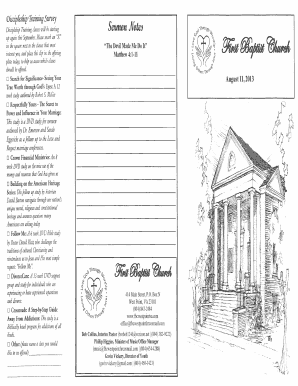 Discipleship Training Survey
Discipleship Training classes will be starting
up again this September. Please mark an "X" in
the space next to the class that most
interests you, and place this slip in the offering
plate today to help us know which class
should be offered.
□ Search for Significance- Seeing Your
True Worth through God's Eyes: A 12
week study authored by Robert S. McGee
□ Respectfully Yours - The Secret to
Power and Influence in Your Marriage
This is a DVD study for women
authored by Dr. Emerson and Sarah
Eggerichs as a follow up to the Love and
Respect marriage conference.
□ Crown Financial Ministries: A
week DVD study on the use of the
money and resources that God has given us
□ Building on the American Heritage
Series: This follow up study by historian
David Barton navigates through our nation's
unique moral, religious and constitutional
heritage and answers questions many
Americans are asking today.
□ Follow Me: A 6 week DVD/Bible study
by Pastor David Platt who challenges the
traditions of cultural Christianity and
"Follow Me".
□ DivorceCare: A 13 week DVD support
group and study for individuals who are
experiencing or have experienced separation
and divorce.
□ Crossroads: A Step-by-Step Guide
Away From Addiction: This study is a
Biblically based program for addictions of all
kinds.
□ Other: (please name a class you would
like to see offered)
Sermon Notes
"The Devil Made Me Do It"
Matthew 4:1-11
First Baptist Church
Main Street P.O. Box
West Point, VA 23181
Bob Collins, Interim Pastor
Phillip Higgins, Minister of Music/Office Manager
Gene Vickers, Director of Youth
First Baptist Church
August 11, 2013